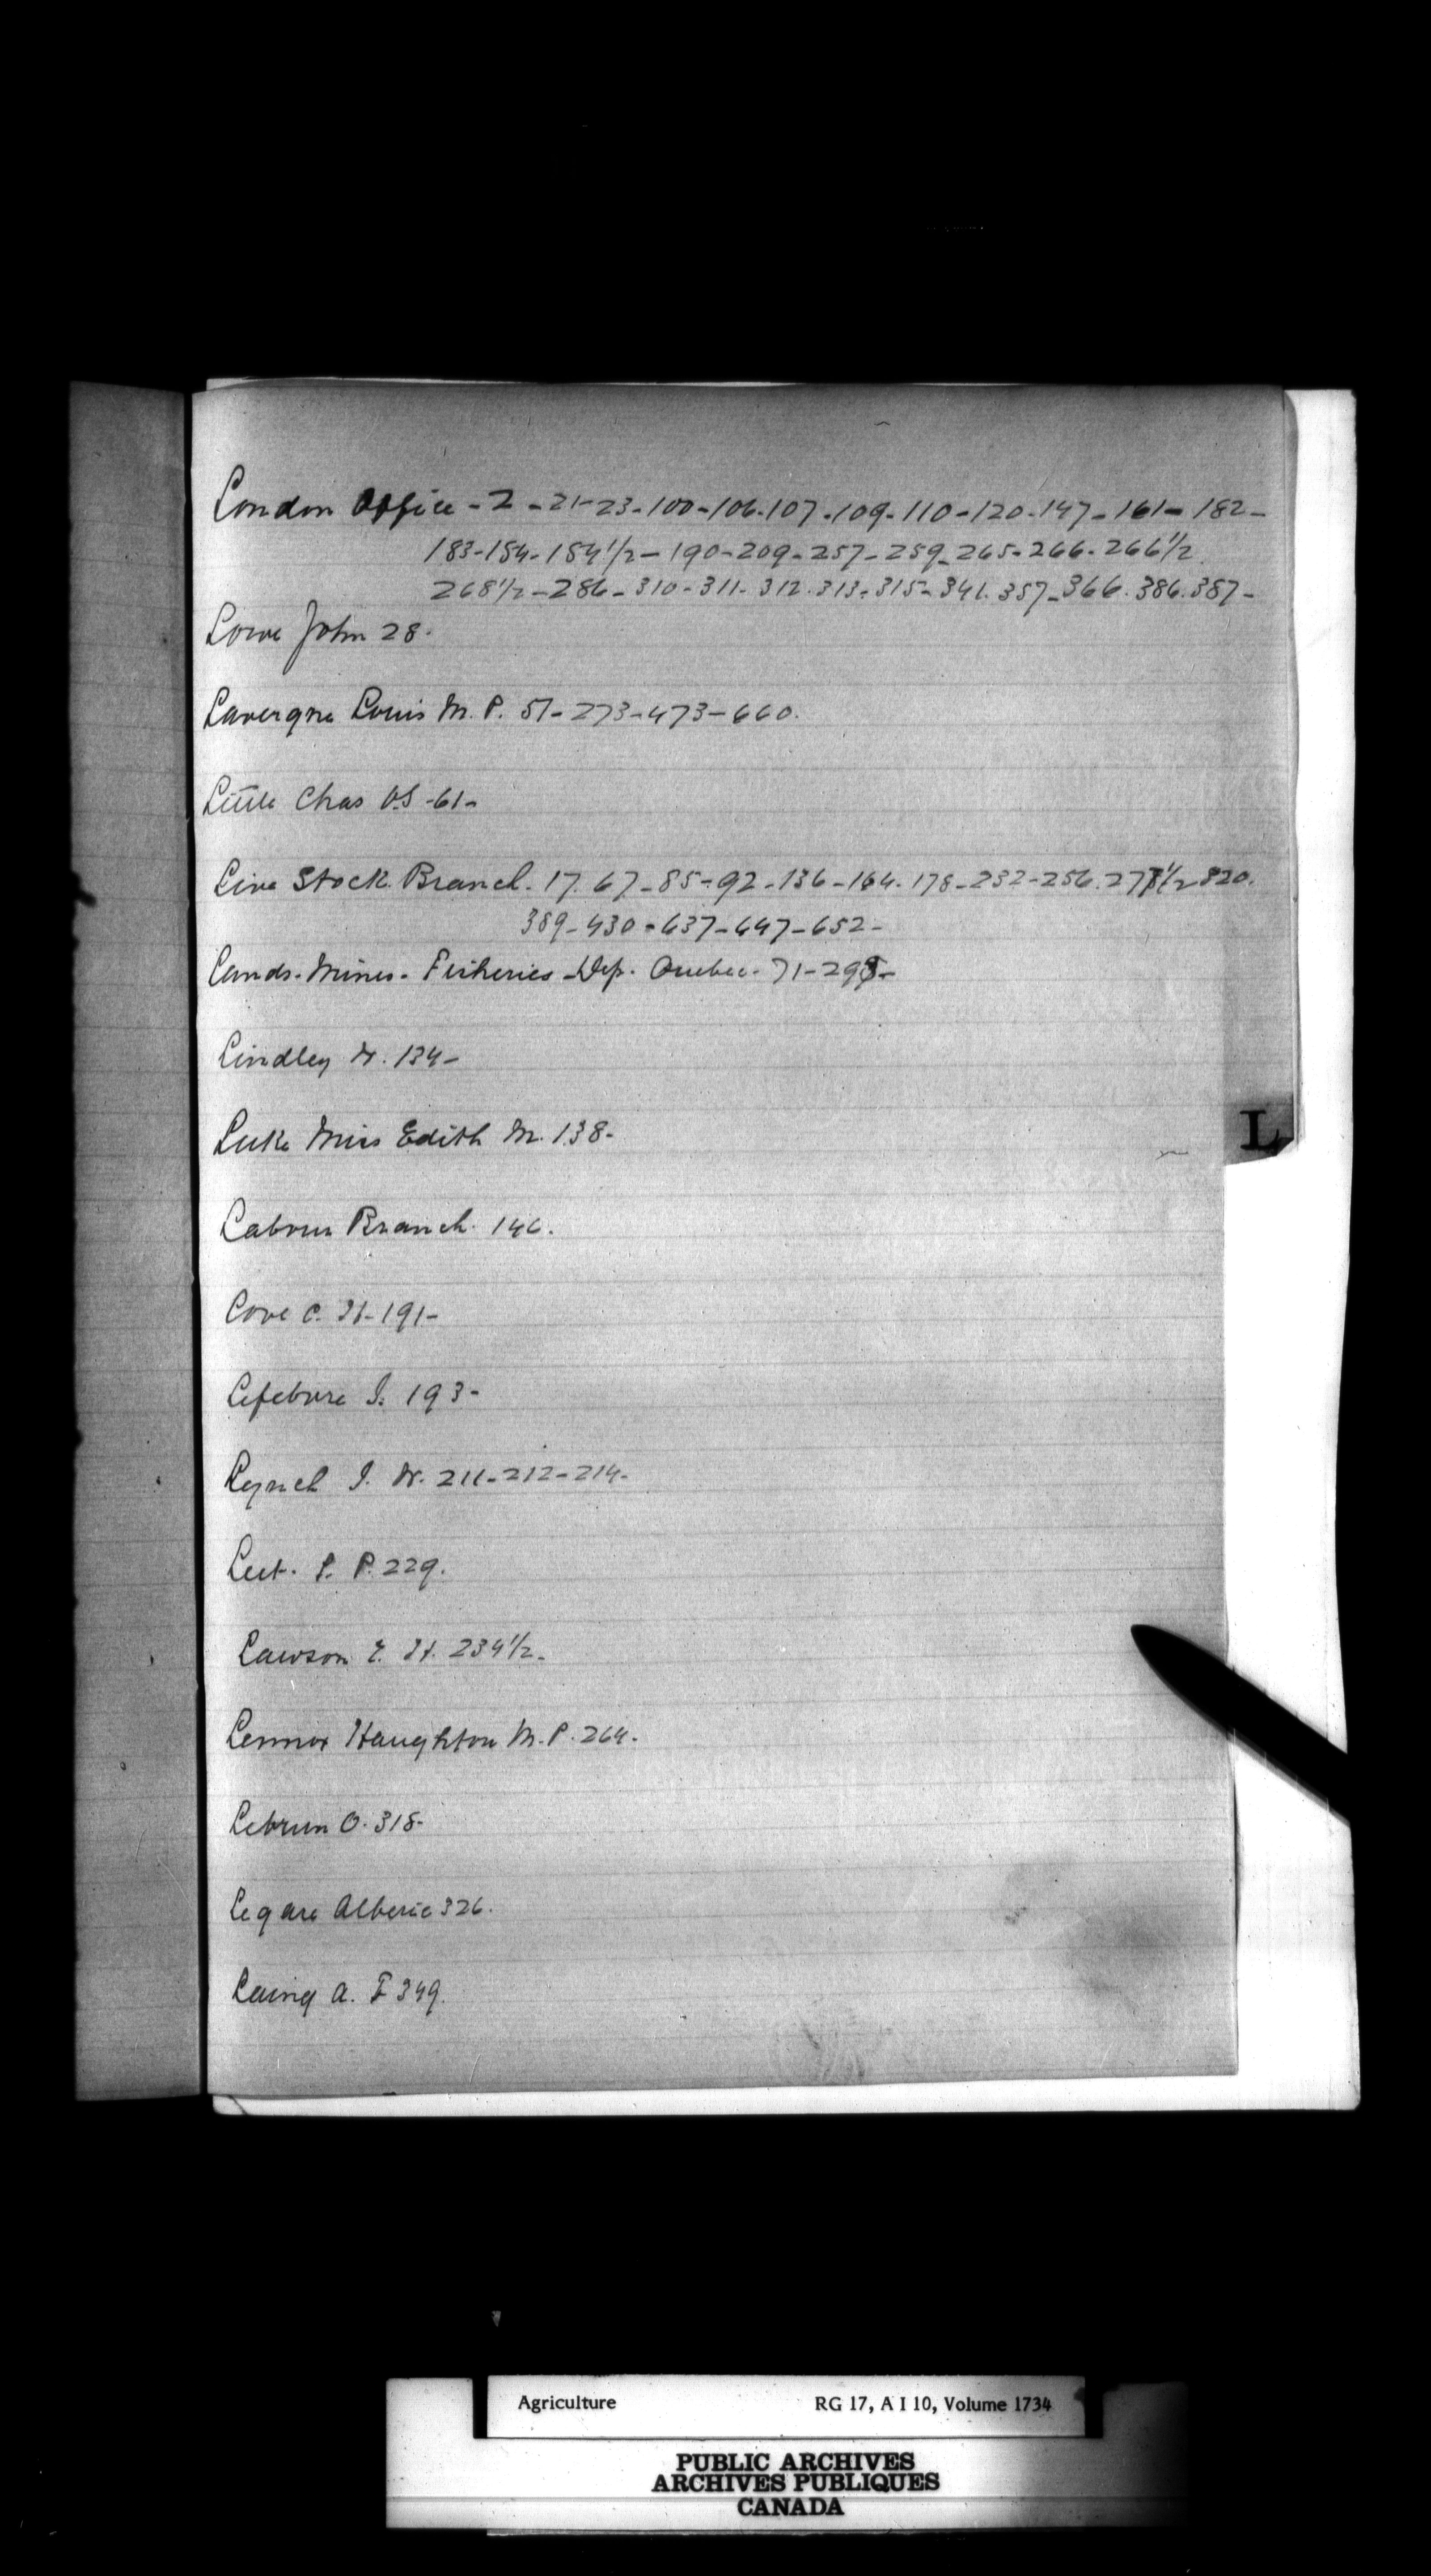 London Office - 2 - 21-23-100-106.107-109-110-120-147-161-182-
183-184-184 1/2 - 190-209-257-259-265-266-266 1/2
268 1/2 - 286-310-311-312.313-315-341.357-366.386.387-
Lowe John 28.
Lavergne Louis M. P. 51-273-473-660.
Little Chas V.S -61-
Live Stock Branch. 17. 67-85-92-136-164-178-232-256. 1/2 320.
389-430-637-647-652-
Lands-Mines-Fisheries-Dep. Quebec. 71-
Lindley W. 134-
Luke Miss Edith M. 138-
Labour Branch. 146.
Love C. H-191-
Lefebvre J. 193-
Lynch J. W. 211-212-214-
P. 229.
Lawson E. H. 234 1/2-
Lennox Haughton M. P. 264.
Lebrun O. 318-
Legare Alberic 326.
Laing A. F 349.
L
Agriculture RG 17, A I 10, Volume 1734
PUBLIC ARCHIVES
ARCHIVES PUBLIQUES
CANADA